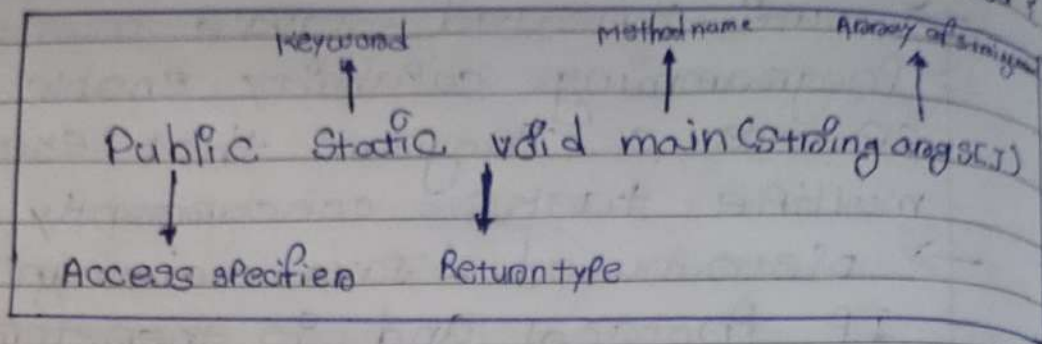 Keyword Method name Array of string
Public Static void main (String args[])
Access specifier Return type